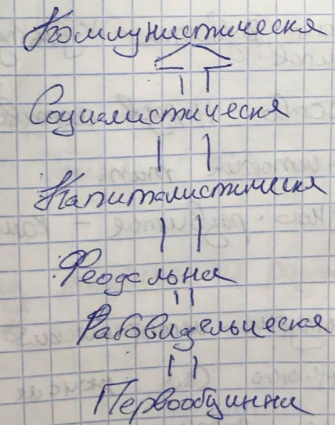 Комунистическя
Социалистическя
Капиталистическя
Феодальна
Рабовладельческая
Первообщинна